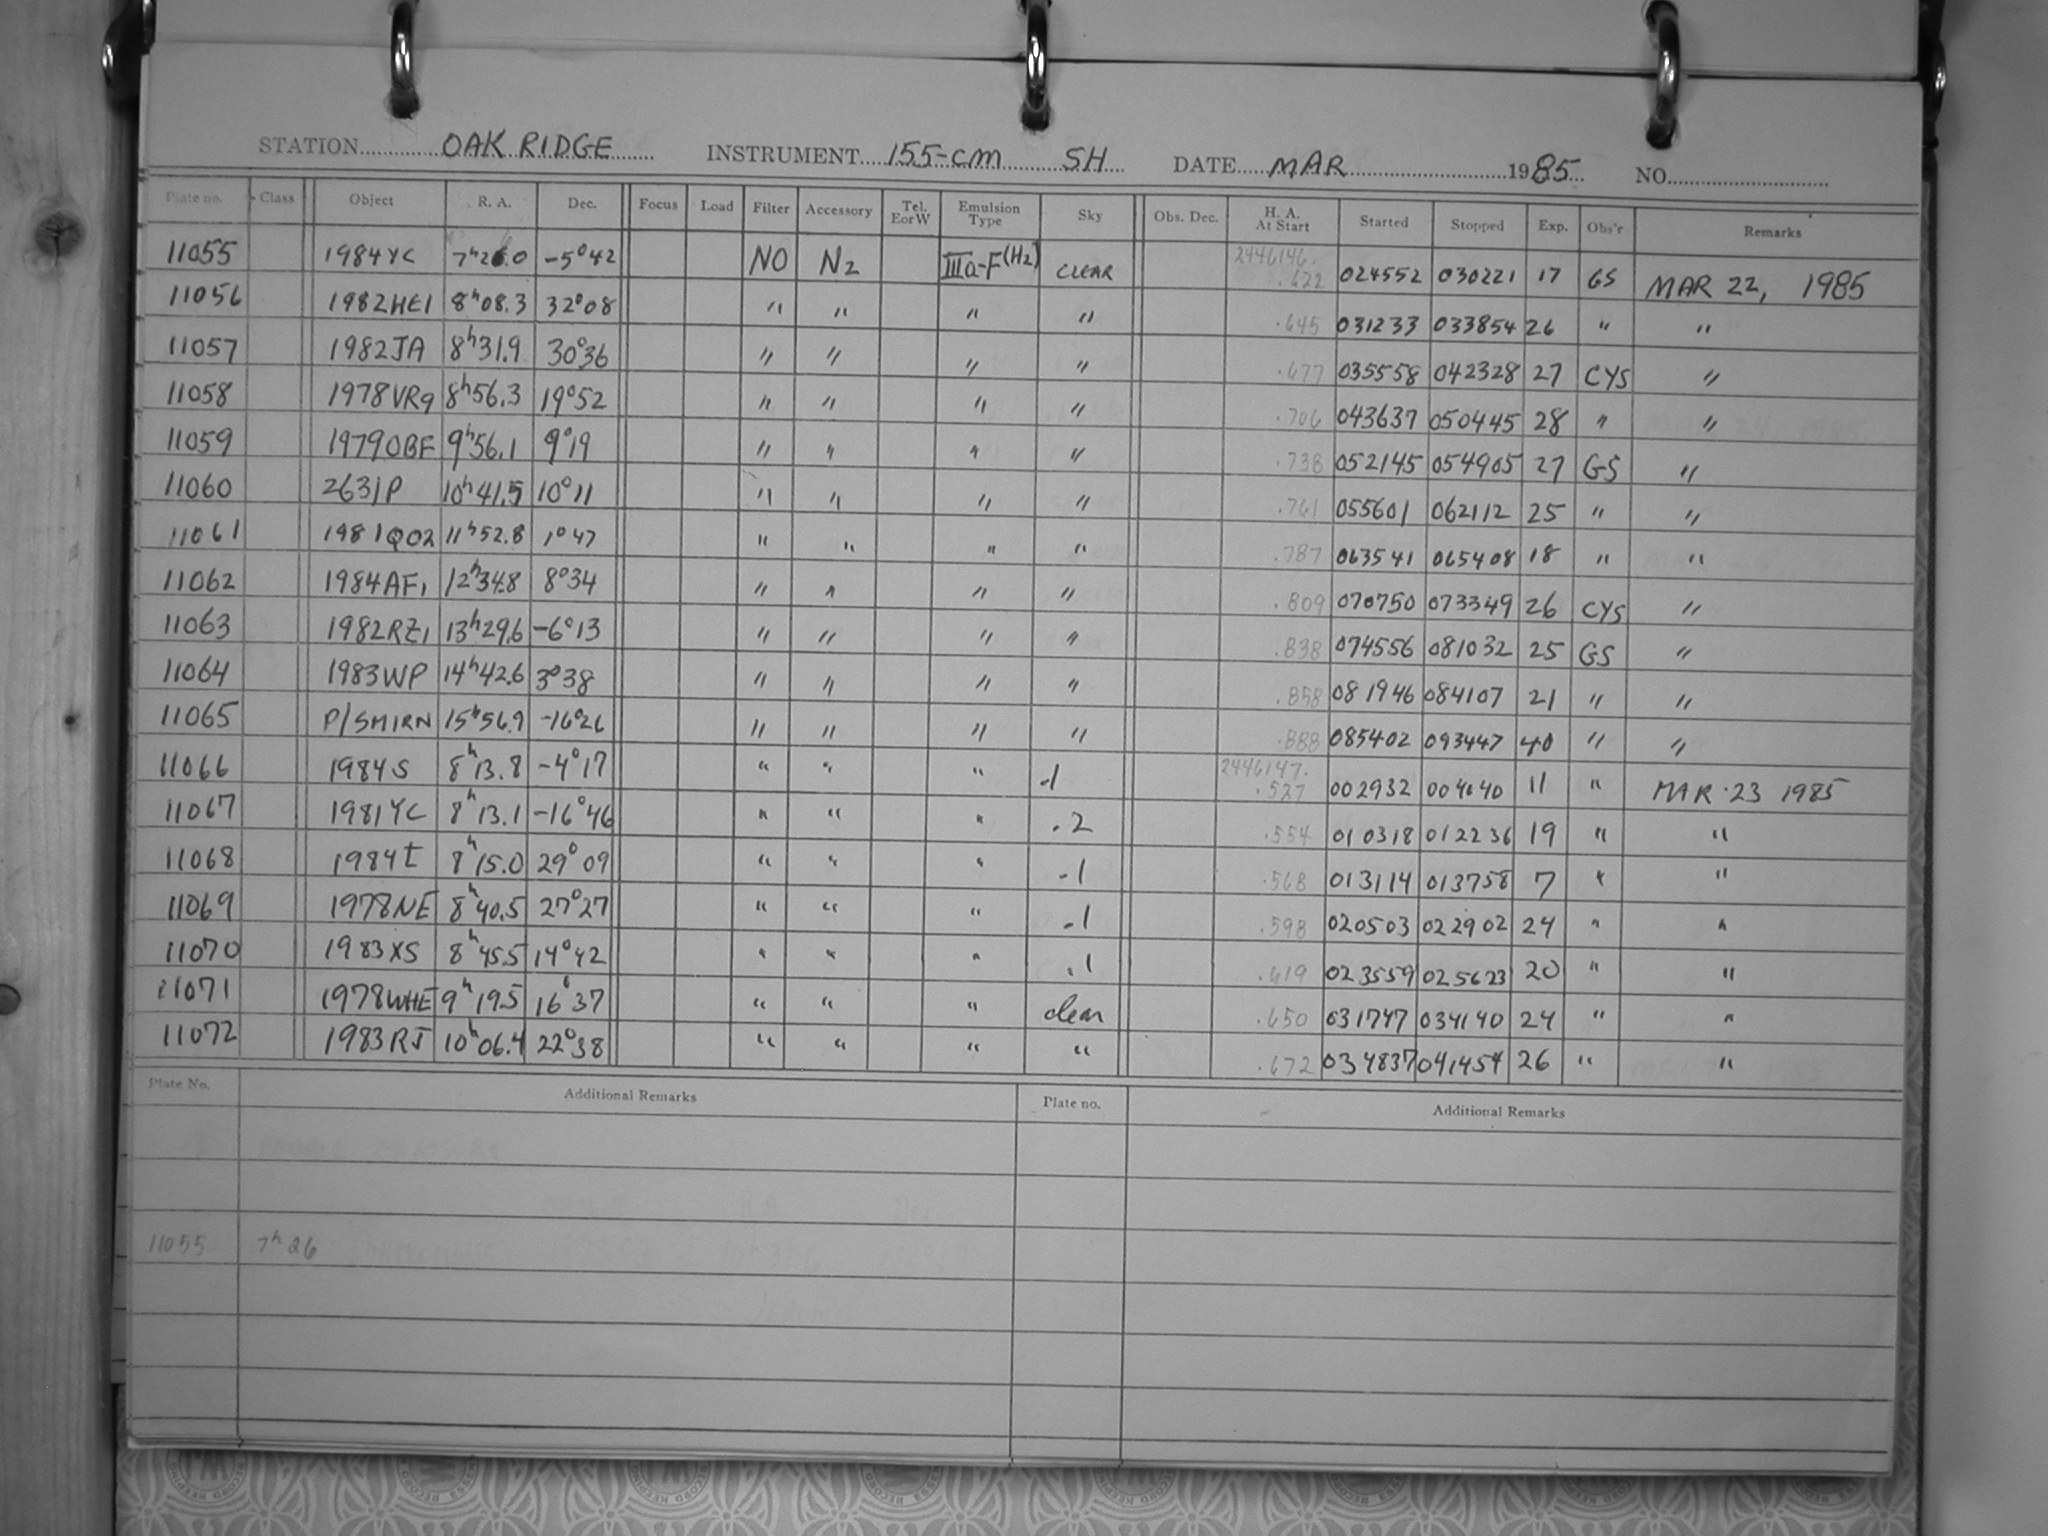 STATION OAK RIDGE INSTRUMENT 155-cm SH DATE MAR 1985 NO.
Plate no. Class Object R. A. Dec. Focus Load Filter Accessory Tel. E or W Emulsion Type Sky Obs. Dec. H. A. At Start Started Stopped Exp. Obs'r Remarks
11055 1984YC 7h26.0 -5°42 NO N2 IIIa-F(H2) CLEAR 2446146. .622 024552 030221 17 GS MAR 22, 1985
11056 1982HE1 8h08.3 32°08 " " " " .645 031233 033854 26 " "
11057 1982JA 8h31.9 30°36 " " " " .677 035558 042328 27 CYS "
11058 1978VR9 8h56.3 19°52 " " " " .706 043637 050445 28 " "
11059 1979OBF 9h56.1 9°19 " " " " .738 052145 054905 27 GS "
11060 2631P 10h41.5 10°11 " " " " .761 055601 062112 25 " "
11061 1981QO2 11h52.8 1°47 " " " " .787 063541 065408 18 " "
11062 1984AF1 12h34.8 8°34 " " " " .809 070750 073349 26 CYS "
11063 1982RZ1 13h29.6 -6°13 " " " " .838 074556 081032 25 GS "
11064 1983WP 14h42.6 3°38 " " " " .858 081946 084107 21 " "
11065 P/SMIRN 15h56.9 -16°26 " " " " .888 085402 093447 40 " "
11066 1984S 8h13.8 -4°17 " " " -1 2446147. .527 002932 004040 11 " MAR 23 1985
11067 1981YC 8h13.1 -16°46 " " " .2 .554 010318 012236 19 " "
11068 1984t 8h15.0 29°09 " " " -1 .568 013114 013758 7 " "
11069 1978NE 8h40.5 27°27 " " " -1 .598 020503 022902 24 " "
11070 1983XS 8h45.5 14°42 " " " .1 .619 023559 025623 20 " "
11071 1978WHE 9h19.5 16°37 " " " clear .650 031747 034140 24 " "
11072 1983RJ 10h06.4 22°38 " " " " .672 034837 041454 26 " "
Plate No. Additional Remarks Plate no. Additional Remarks
11055 7h26